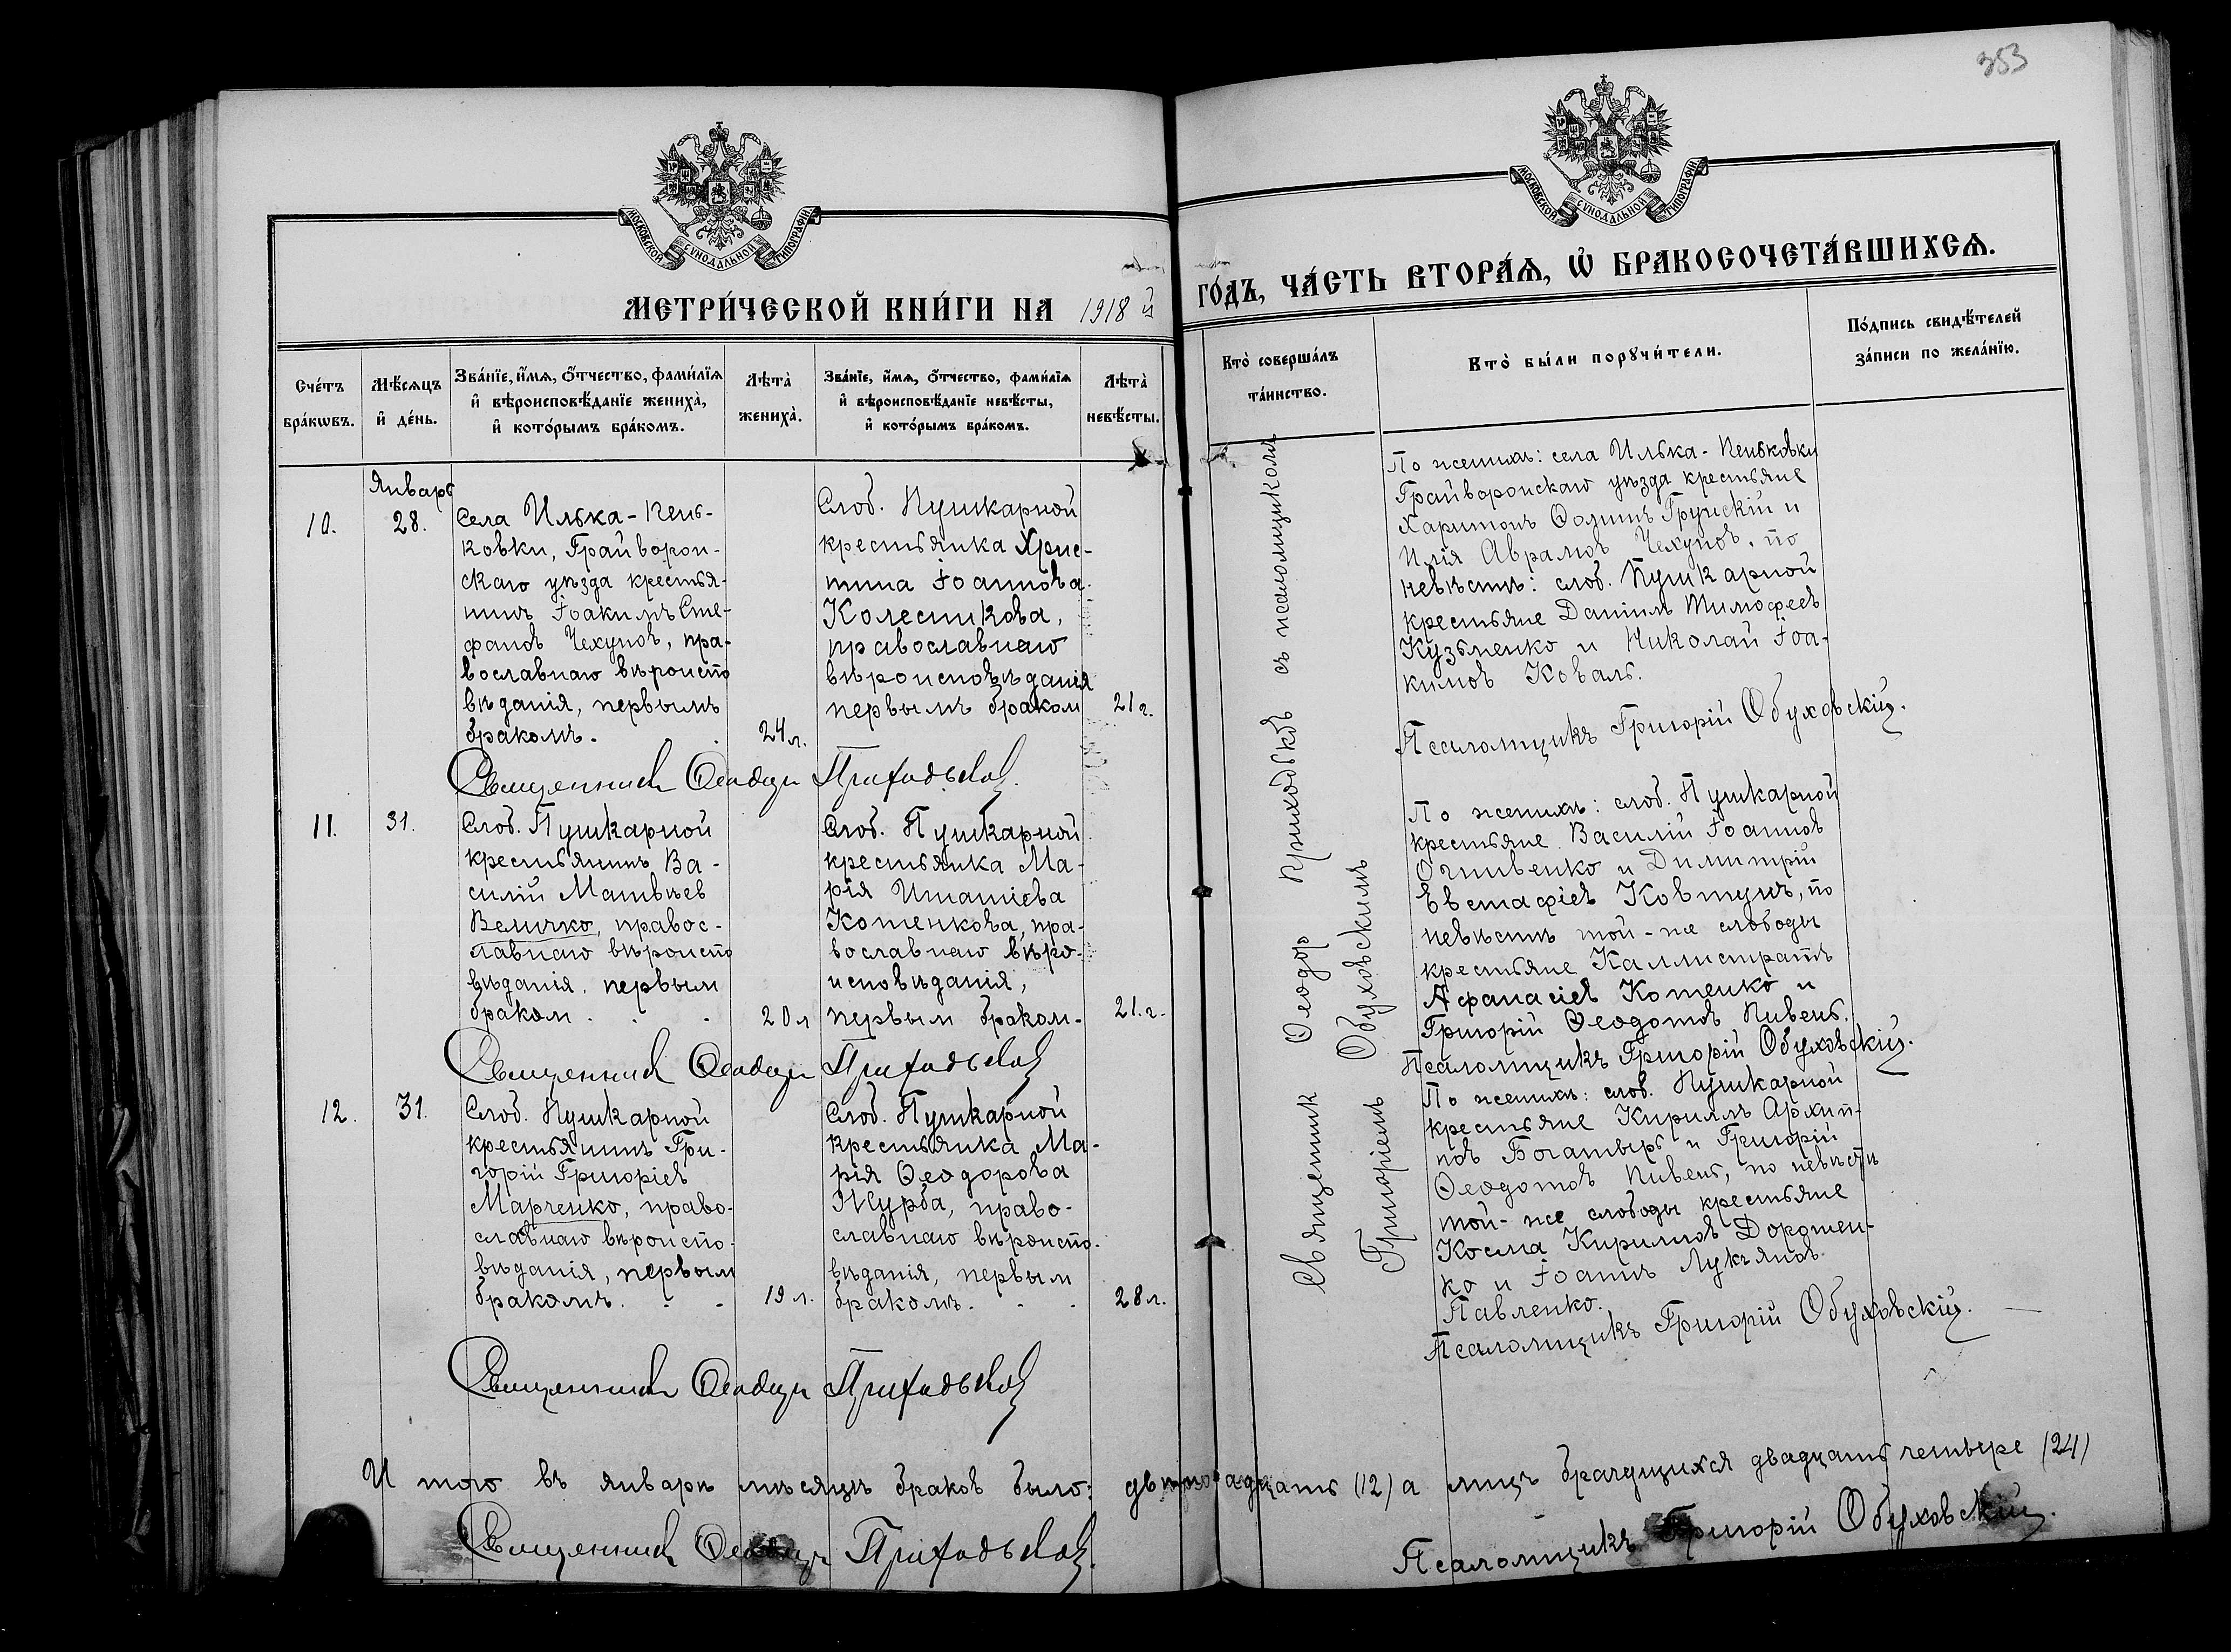 353
МОСКОВСКОЙ СѴНОДАЛЬНОЙ ТИПОГРАФІИ
МОСКОВСКОЙ СѴНОДАЛЬНОЙ ТИПОГРАФІИ
МЕТРИ́ЧЕСКОЙ КНИ́ГИ НА 1918 й
ГО́ДЪ, ЧА́СТЬ ВТОРА́Ѧ, Ѡ҆ БРАКОСОЧЕТА́ВШИХСѦ.
Сче́тъ
бра́кѡвъ.
Мѣ́сѧцъ
и҆ де́нь.
Зва́нїе, и҆́мѧ, ѻ҆́тчество, фами́лїѧ
и҆ вѣроисповѣ́данїе жениха̀,
и҆ кото́рымъ бра́комъ.
Лѣта̀
жениха̀.
Зва́нїе, и҆́мѧ, ѻ҆́тчество, фами́лїѧ
и҆ вѣроисповѣ́данїе невѣ́сты,
и҆ кото́рымъ бра́комъ.
Лѣта̀
невѣ́сты.
Кто̀ соверша́лъ
та́инство.
Кто̀ бы́ли порꙋчи́тели.
По́дпись свидѣ́телей
за́писи по жела́нїю.
10.
Январь
28.
Села Илька-Кень-
ковки, Грайворон-
скаго уѣзда крестья-
нинъ Іоакимъ Сте-
фановъ Чехуновъ, пра-
вославнаго вѣроиспо
вѣданія, первымъ
бракомъ.
24 л.
Слоб. Пушкарной
крестьянка Хрис-
тина Іоаннова
Колесникова,
православнаго
вѣроисповѣданія
первымъ браком
21 г.
Священник Феодор Приходьков
По женихѣ: села Илька-Кеньковки
Грайворонскаго уѣзда крестьяне
Харитонъ Фоминъ Грунскій и
Илія Аврамовъ Чехуновъ, по
невѣстѣ: слоб. Пушкарной
крестьяне Даніилъ Тимофеевъ
Кузьменко и Николай Іоа-
кимовъ Коваль.
Псаломщикъ Григорій Обуховскій.
11.
31.
Слоб. Пушкарной
крестьянинъ Ва-
силій Матвѣев
Величко, правос-
лавнаго вѣроиспо
вѣданія, первым
браком
20 л
Слоб. Пушкарной
крестьянка Ма-
рія Игнатіева
Котенкова, пра-
вославнаго вѣро-
исповѣданія,
первым браком-
21. г.
Священник Феодор Приходьков
По женихѣ: слоб. Пушкарной
крестьяне Василій Іоаннов
Огнивенко и Димитрій
Евстафіев Ковтунъ, по
невѣстѣ той-же слободы
крестьяне Каллистратъ
Афанасіев Котенко и
Григорій Феодотов Пивень.
Псаломщикъ Григорій Обуховскій.
12.
31.
Слоб. Пушкарной
крестьянинъ Гри-
горій Григоріев
Марченко, право-
славнаго вѣроиспо-
вѣданія, первым
бракомъ.
19 л.
Слоб. Пушкарной
крестьянка Ма-
рія Феодорова
Журба, право-
славнаго вѣроиспо-
вѣданія, первым
бракомъ.
28 л.
Священник Феодор Приходьков
По женихѣ: слоб. Пушкарной
крестьяне Кириллъ Архип-
пов Богатырь и Григорій
Феодотов Пивень, по невѣстѣ
той-же слободы крестьяне
Косма Кириллов Дорошен-
ко и Іоаннъ Лукьянов
Павленко.
Псаломщикъ Григорій Обуховскій.
Священник Феодор Приходьков съ псаломщиком
Григоріемъ Обуховскимъ
Итого въ январѣ мѣсяцѣ браков было: двѣнадцать (12) а лицъ брачущихся двадцать четыре (24)
Священник Феодор Приходьков.
Псаломщикъ Григорій Обуховскій.